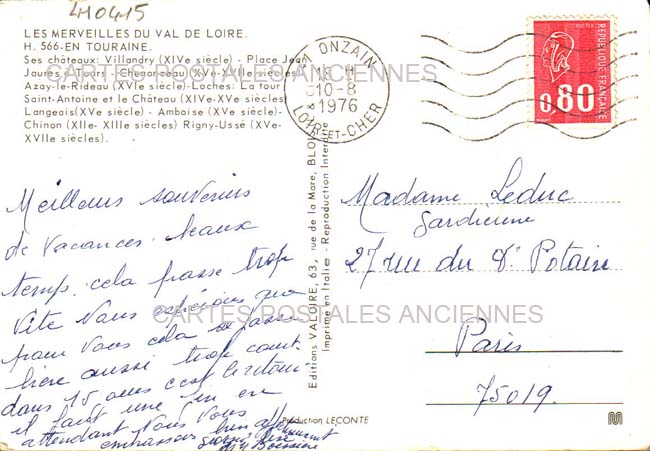 410415
LES MERVEILLES DU VAL DE LOIRE.
H. 566-EN TOURAINE.
Ses châteaux: Villandry (XIVe siècle) - Place Jean
Jaurès à Tours - Chenonceau (XVe-XVIe siècles)
Azay-le-Rideau (XVIe siècle)-Loches: La tour
Saint-Antoine et le Château (XIVe-XVe siècles)
Langeais(XVe siècle) - Amboise (XVe siècle)-
Chinon (XIIe- XIIIe siècles) Rigny-Ussé (XVe-
XVIIe siècles).
CARTES POSTALES ANCIENNES
Meilleurs souvenirs
de Vacances. beaux
temps. cela passe trop
vite Nous espérons que
pour Vous cela se passe
bien aussi trop court
dans 15 jours c'est le retour
il faut une fin en
attendant Nous Vous
embrassons bien
Editions VALOIRE, 63, rue de la Mare, BLOIS
Imprimé en Italie - Reproduction Interdite
41 ONZAIN
10-8
1976
LOIR-ET-CHER
REPUBLIQUE FRANÇAISE
0,80
Madame Leduc
Gardienne
27 rue du Dr Potaire
CARTES POSTALES ANCIENNES
Paris
75019.
Production LECONTE